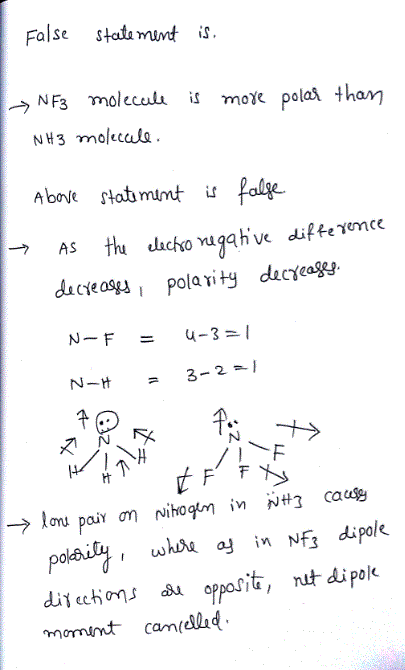 False statement is.
→ NF3 molecule is more polar than
NH3 molecule.
Above statement is false
→ As the electronegative difference
decreases, polarity decreases.
N-F = 4-3=1
N-H = 3-2=1
N N
H H H F F F
→ lone pair on Nitrogen in NH3 causes
polarity, where as in NF3 dipole
directions are opposite, net dipole
moment cancelled.